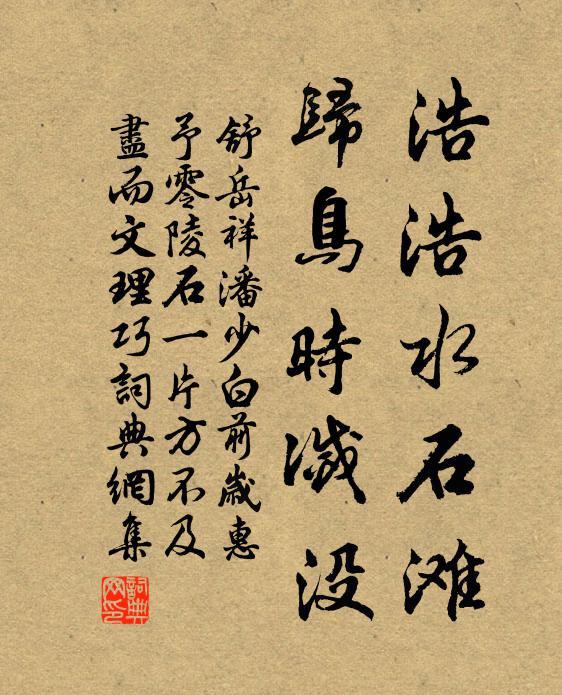 浩浩水石滩
歸鳥時滅没
舒岳祥潘少白前歲惠
予零陵石一片方不及
盡而文理巧詞典網集
詞典网印